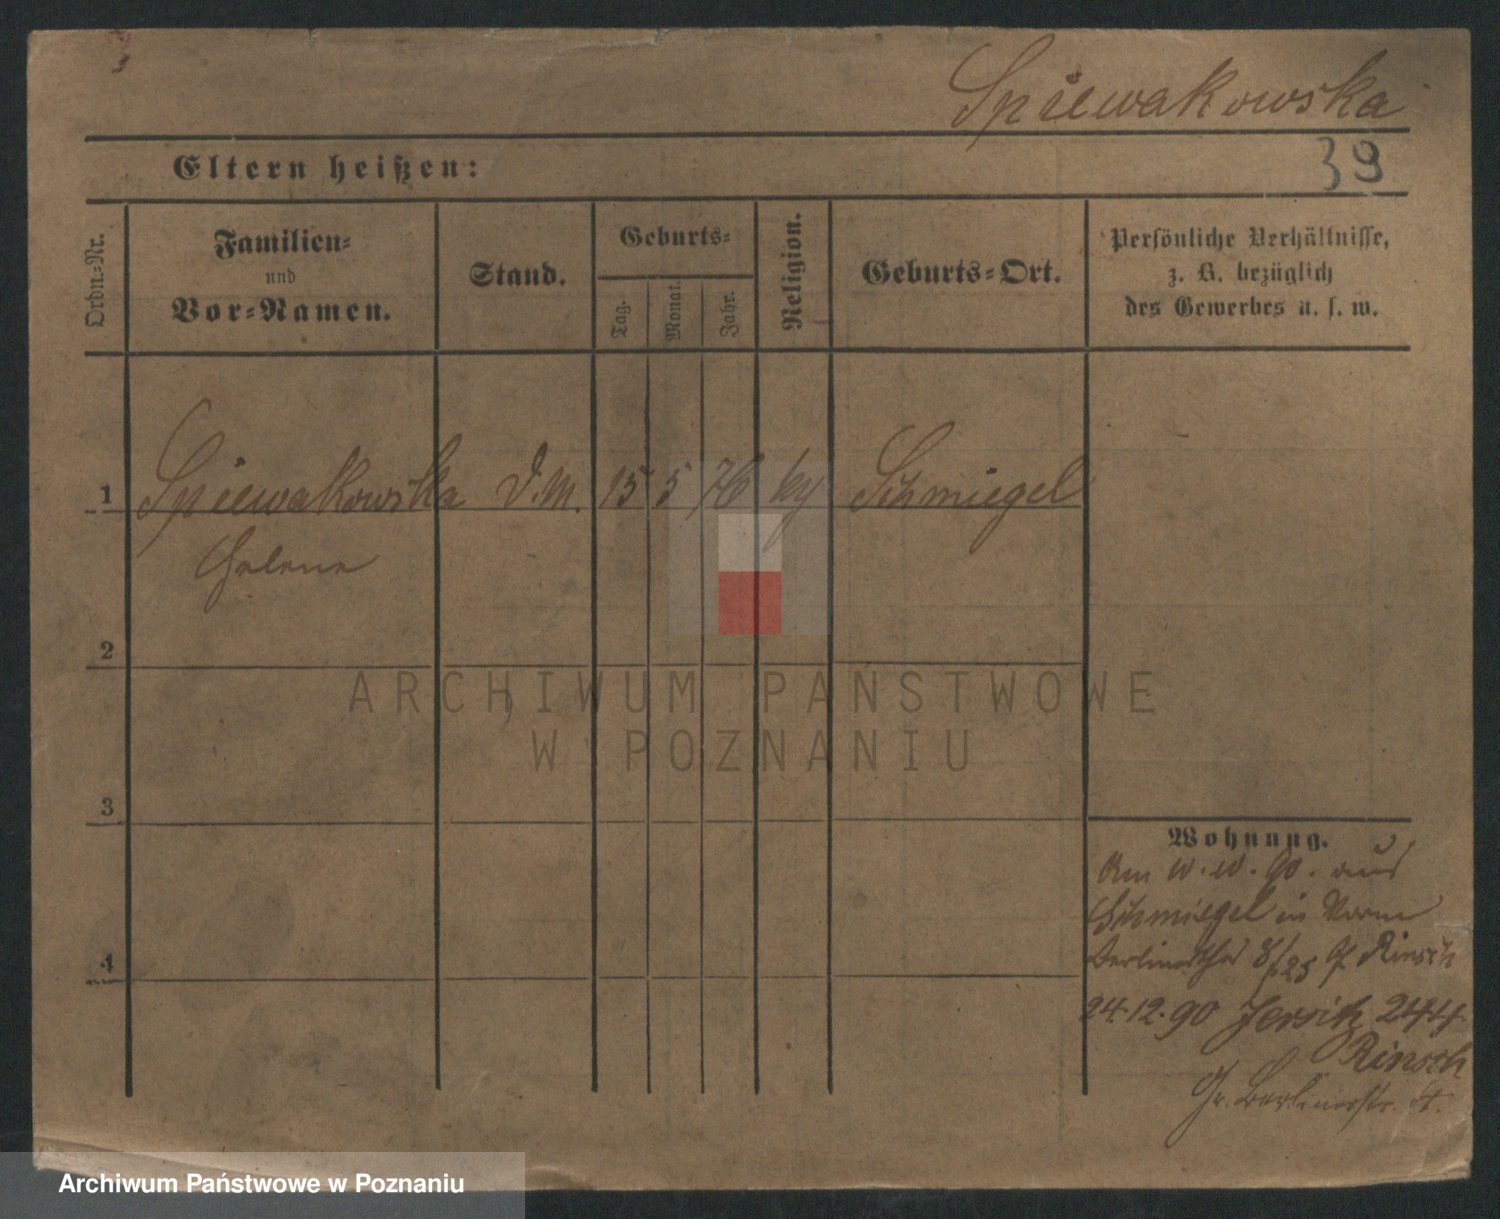 Spiewakowska
39
Eltern heißen:
Ordn.-Nr.
Familien-
und
Vor-Namen.
Stand.
Geburts-
Tag.
Monat.
Jahr.
Religion.
Geburts-Ort.
Persönliche Verhältnisse,
z. B. bezüglich
des Gewerbes u. s. w.
1 Spiewakowska D.M. 15 5 76 Schmiegel
Helene
2
3
4
Wohnung.
Am 90. aus
Schmiegel in
8/25
24.12.90 Jersitz 244
Rinsch
Gr. Berlinerstr.
ARCHIWUM PAŃSTWOWE
W POZNANIU
Archiwum Państwowe w Poznaniu